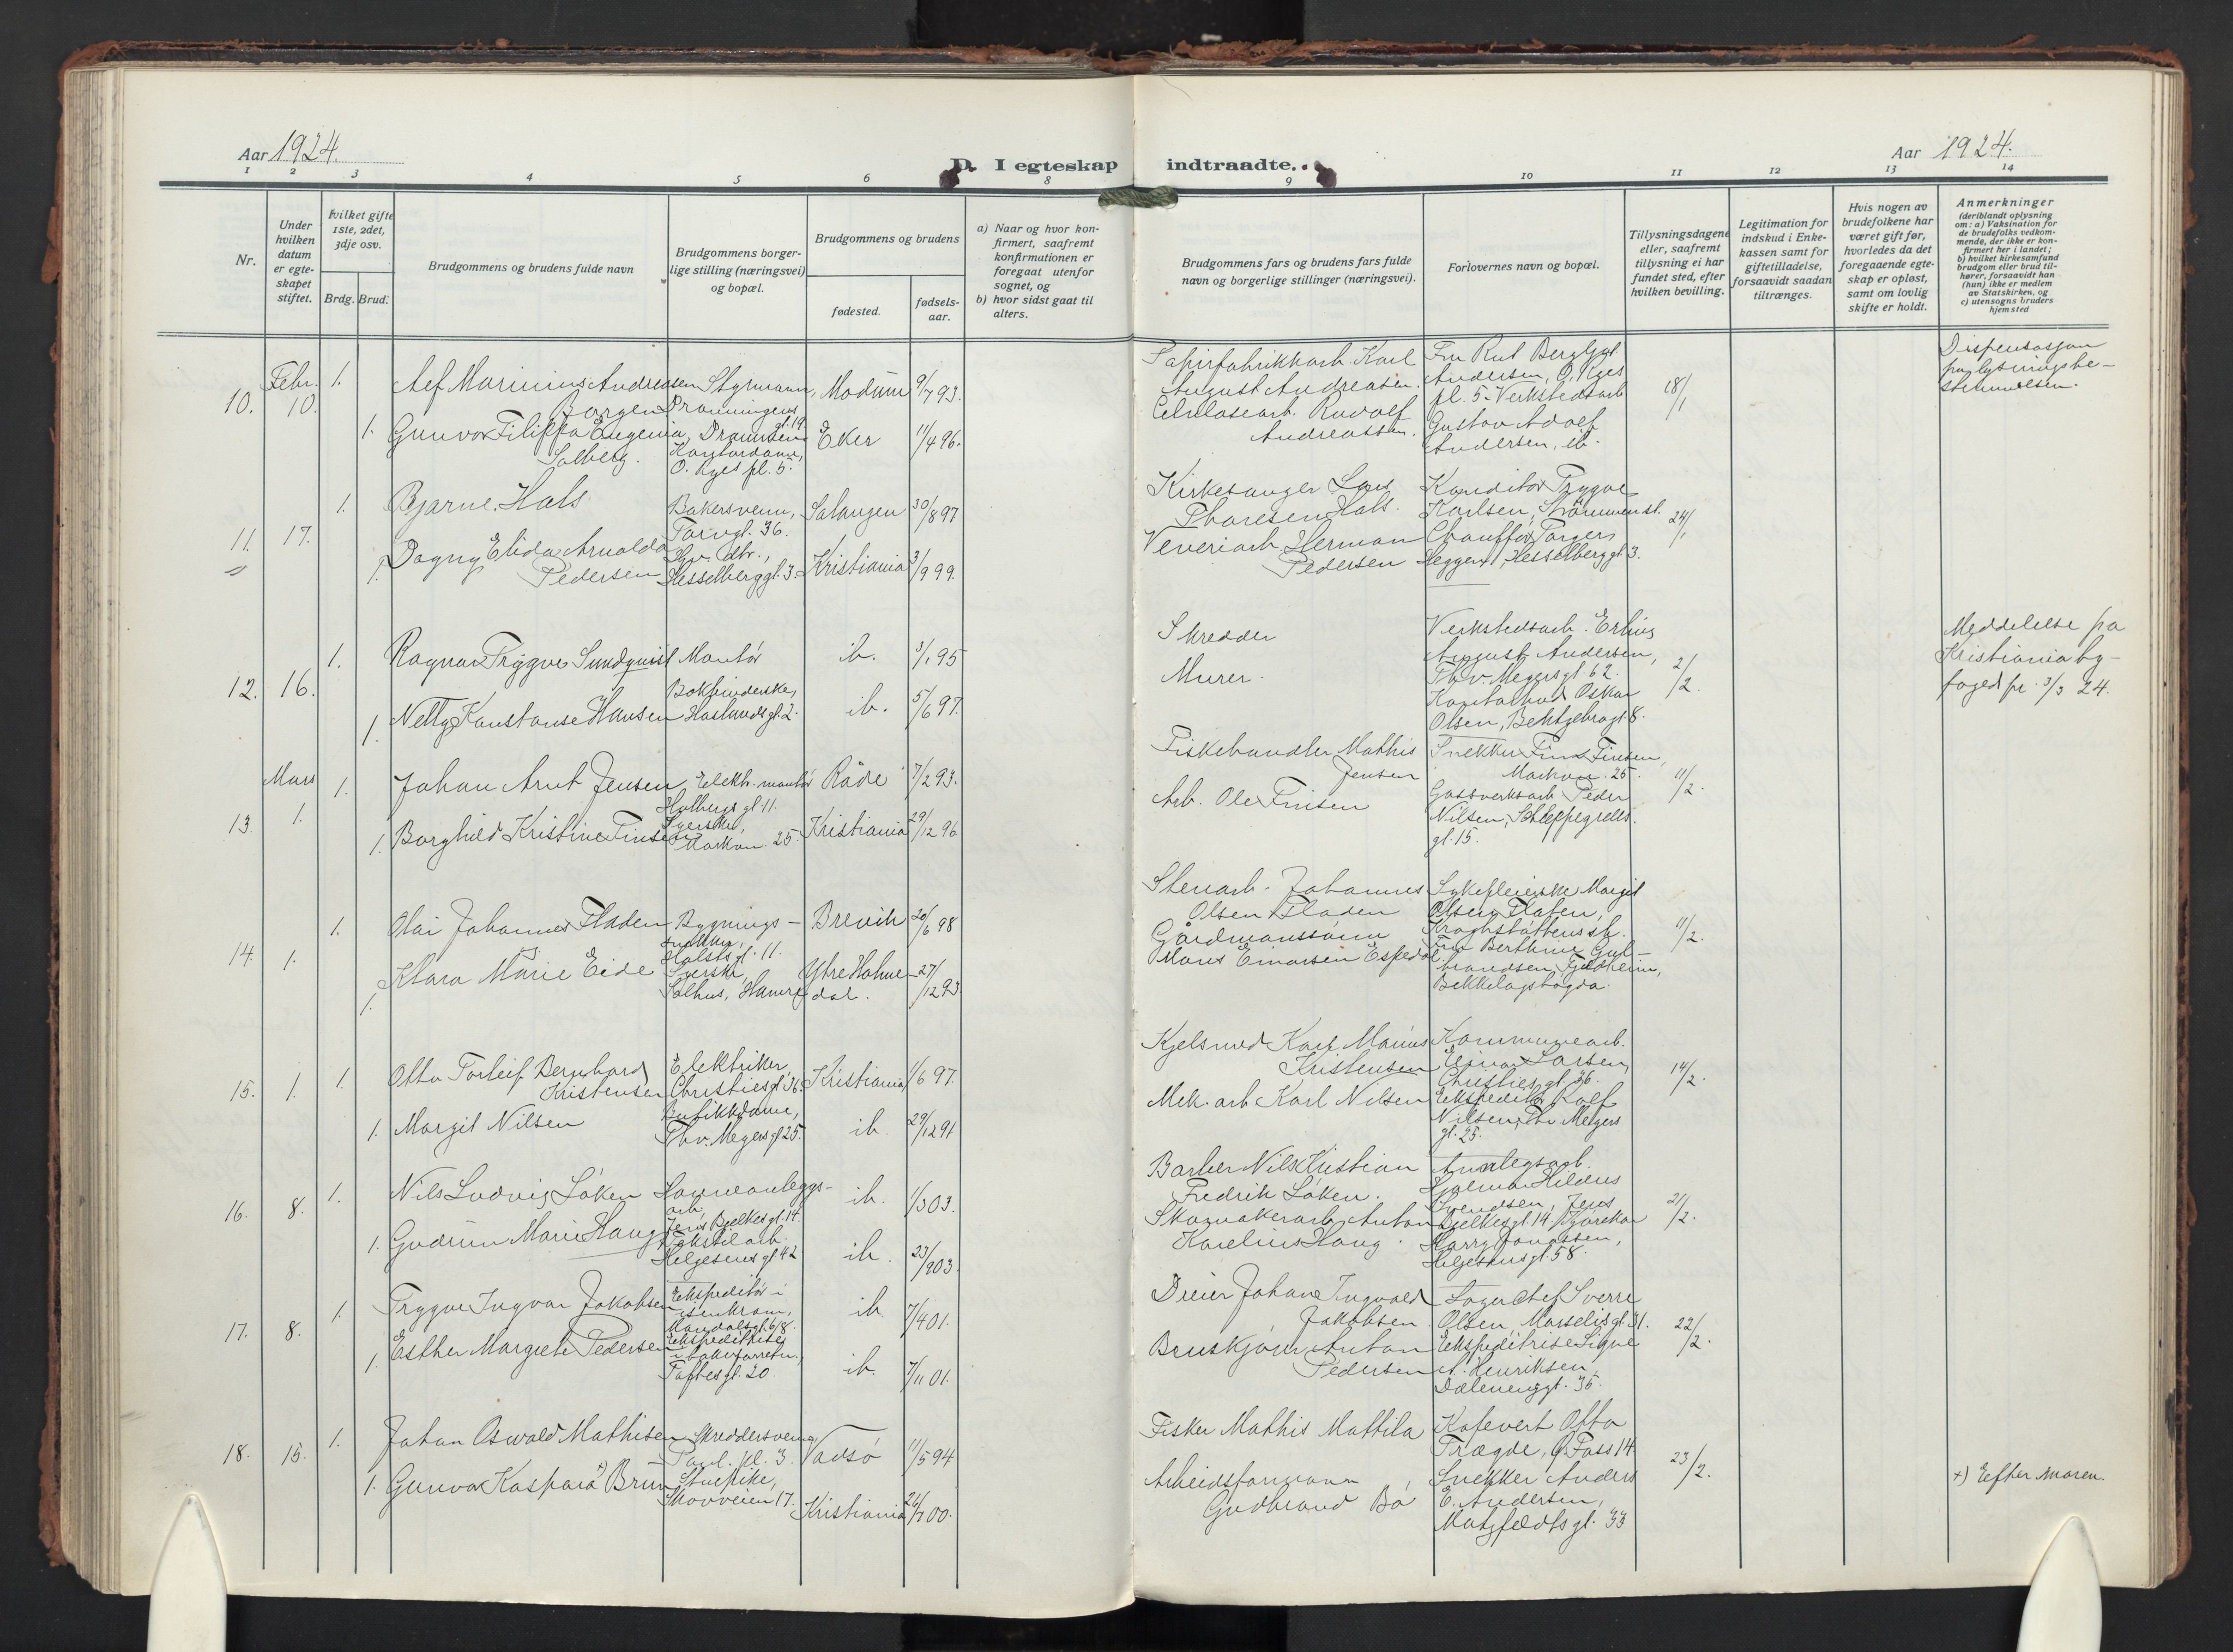 Aar 1924.
D. I egteskap indtraadte.
Aar 1924.
1 2 3 4 5 6 8 9 10 11 12 13 14
Nr.
Under hvilken datum er egteskapet stiftet.
Hvilket gifte 1ste, 2det, 3dje osv.
Brdg. Brud.
Brudgommens og brudens fulde navn
Brudgommens borgerlige stilling (næringsvei) og bopæl.
Brudgommens og brudens
fødested.
fødselsaar.
a) Naar og hvor konfirmert, saafremt konfirmationen er foregaat utenfor sognet, og
b) hvor sidst gaat til alters.
Brudgommens fars og brudens fars fulde navn og borgerlige stillinger (næringsvei).
Forlovernes navn og bopæl.
Tillysningsdagene eller, saafremt tillysning ei har fundet sted, efter hvilken bevilling.
Legitimation for indskud i Enkekassen samt for giftetilladelse, forsaavidt saadan tiltrænges.
Hvis nogen av brudefolkene har været gift før, hvorledes da det foregaaende egteskap er opløst, samt om lovlig skifte er holdt.
Anmerkninger
(deriblandt oplysning om: a) Vaksination for de brudefolks vedkommende, der ikke er konfirmert her i landet; b) hvilket kirkesamfund brudgom eller brud tilhører, forsaavidt han (hun) ikke er medlem av Statskirken, og c) utensogns bruders hjemsted
10. Febr. 10. 1. Alf Marinius Andreasen Borgen Styrmann, Dronningens gt. 19. Drammen Modum 9/7 93.
Papirfabrikkarb. Karl August Andreasen.
Fru Rut Bergljot Andersen, O. Ryes pl. 5. Verkstedsarb. Gustav Adolf Andersen, ib.
18/1
Dispensasjon fra lysningsbestemmelsen.
1. Gunvor Filippa Eugenia Solberg. Kontordame, O. Ryes pl. 5. Eker 11/4 96.
Celulosearb. Rudolf Andreassen.
11. 17. 1. Bjarne Hals Bakersvenn, Torvgt. 36. Salangen 30/8 97
Kirkesanger Lars Thoresen Hals.
Konditor Trygve Karlsen, Strømmen st.
24/1
1. Dagny Elida Arnolda Pedersen Hv. dtr., Hesselberggt. 3. Kristiania 3/9 99.
Veveriarb. Herman Pedersen
Chauffør Torger Heggen, Hesselberggt. 3.
12. 16. 1. Ragnar Trygve Sundquist Montør ib. 3/1 95
Skredder
Verkstedsarb. Erling August Andersen, Th. v. Meyersgt 62.
2/2.
Meddelelse fra Kristiania byfoged pr. 3/3 24.
1. Nelly Konstanse Hansen Bokbinderske, Haslunds gt. 2. ib. 5/6 97.
Murer.
Kontorbud Oskar Olsen, gt. 8.
13. Mars 1. 1. Johan Arnt Jensen Elektr. montør Holbergs gt 11. Råde 7/2 93.
Fiskehandler Mathis Jensen
Snekker Finsen, Markvn. 25.
11/2.
1. Borghild Kristine Finsen Syerske, Markvn. 25. Kristiania 29/12 96
Arb. Ole Finsen
Gassverksarb. Peder Nilsen, Schleppegrells gt. 15.
14. 1. 1. Olai Johannes Fladen Bygningssnekker, Holsts gt. 11. Brevik 20/6 98
Stenarb. Johannes Olsen Fladen
Sykepleierske Margit Olsen Flaten,
11/2.
1. Klara Marie Eide Syerske, Salhus, Hamre Ytre Holmedal. 27/12 93.
Gårdmannssønn Mons Einarsen Espedal.
Fru Berthine Gulbrandsen, Fjeldheim, Bekkelagshøgda.
15. 1. 1. Otto Torleif Bernhard Kristensen Elektriker, Christiesgt. 36. Kristiania 1/6 97.
Kjelsmed Karl Marius Kristensen
Kommunearb. Einar Larsen, Christiesgt. 36.
14/2.
1. Margit Nilsen Butikkdame, Th. v. Meyersgt 25. ib. 29/12 91
Mek. arb Karl Nilsen
Ekspeditør Rolf Nilsen, Th. v. Meyers gt. 25.
16. 8. 1. Nils Ludvig Løken Havneanleggsarb., Jens Bjelkesgt. 14. ib. 1/3 03.
Barber Nils Kristian Fredrik Løken.
Anlegsarb. Hjalmar Hildeus Svendsen, Jens Bjelkesgt. 14
21/2.
1. Gudrun Marie Haug Tekstilarb. Helgesens gt 42 ib. 23/9 03.
Skomakerarb. Anton Karelius Haug.
Kjørekar Harry Jonassen, Helgesensgt. 58.
17. 8. 1. Trygve Ingvar Jakobsen Ekspeditør i isenkram, Mandalsgt. 6/8. ib. 7/4 01.
Dreier Johan Ingvald Jakobsen.
Lagerchef Sverre Olsen, Marselisgt. 31.
22/2.
1. Esther Margrete Pedersen Ekspeditrise i bakerforretn., Toftesgt. 20. ib. 7/11 01.
Bruskjører Anton Pedersen
Ekspeditrise Signe A. Henriksen, Dælenenggt. 36.
18. 15. 1. Johan Oswald Mathisen Skreddersvenn, Paul. pl. 3. Vadsø 11/5 94
Fisker Mathis Mattila
Kafevert Otto Trægde, Ø. Foss 14
23/2.
1. Gunvor Kaspara +) Brun Stuepike, Skovveien 17. Kristiania 26/7 00.
Arbeidsformann Gudbrand Bø
Snekker Anders E. Andersen, Motzfeldts gt. 33
+) Efter moren.